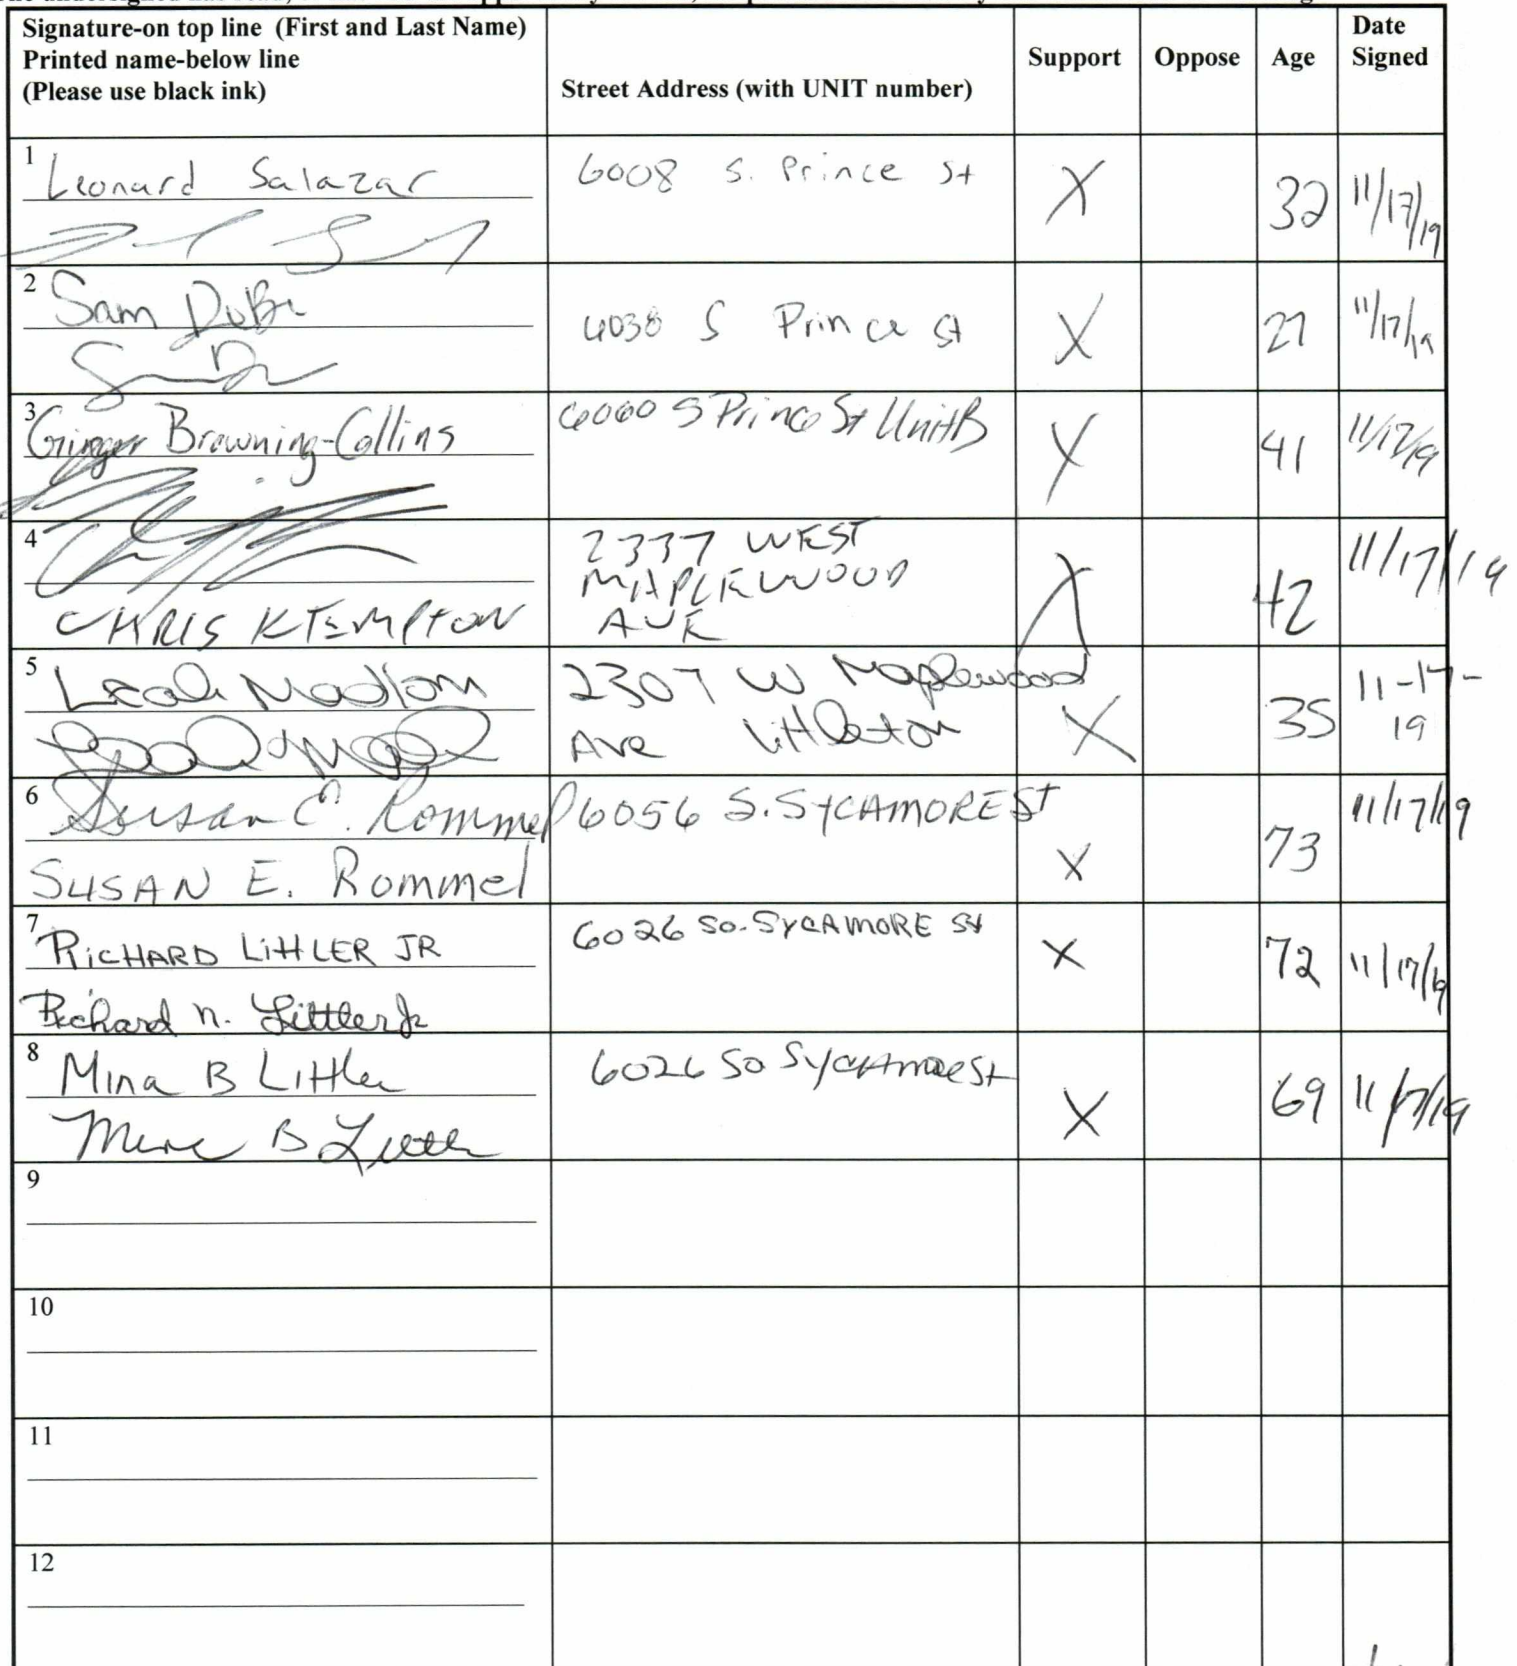 Signature-on top line (First and Last Name)
Printed name-below line
(Please use black ink)
Street Address (with UNIT number)
Support
Oppose
Age
Date
Signed
1 Leonard Salazar
6008 S. Prince St
X
32
11/17/19
2 Sam
6038 S Prince St
X
27
11/17/19
3 Ginger Browning-Collins
6060 S Prince St Unit B
X
41
11/17/19
4
CHRIS KTEMPTON
2337 WEST
MAPLEWOOD
AVE
X
42
11/17/19
5 Leah Nadlom
2307 W Maplewood
Ave Littleton
X
35
11-17-
19
6 Susan E. Rommel
SUSAN E. Rommel
6056 S. SYCAMORE St
X
73
11/17/19
7 RICHARD LITTLER JR
Richard N. Littler Jr
6026 So. SYCAMORE St
X
72
11/17/19
8 Mina B Littler
Mina B Littler
6026 So Sycamore St
X
69
11/17/19
9
10
11
12